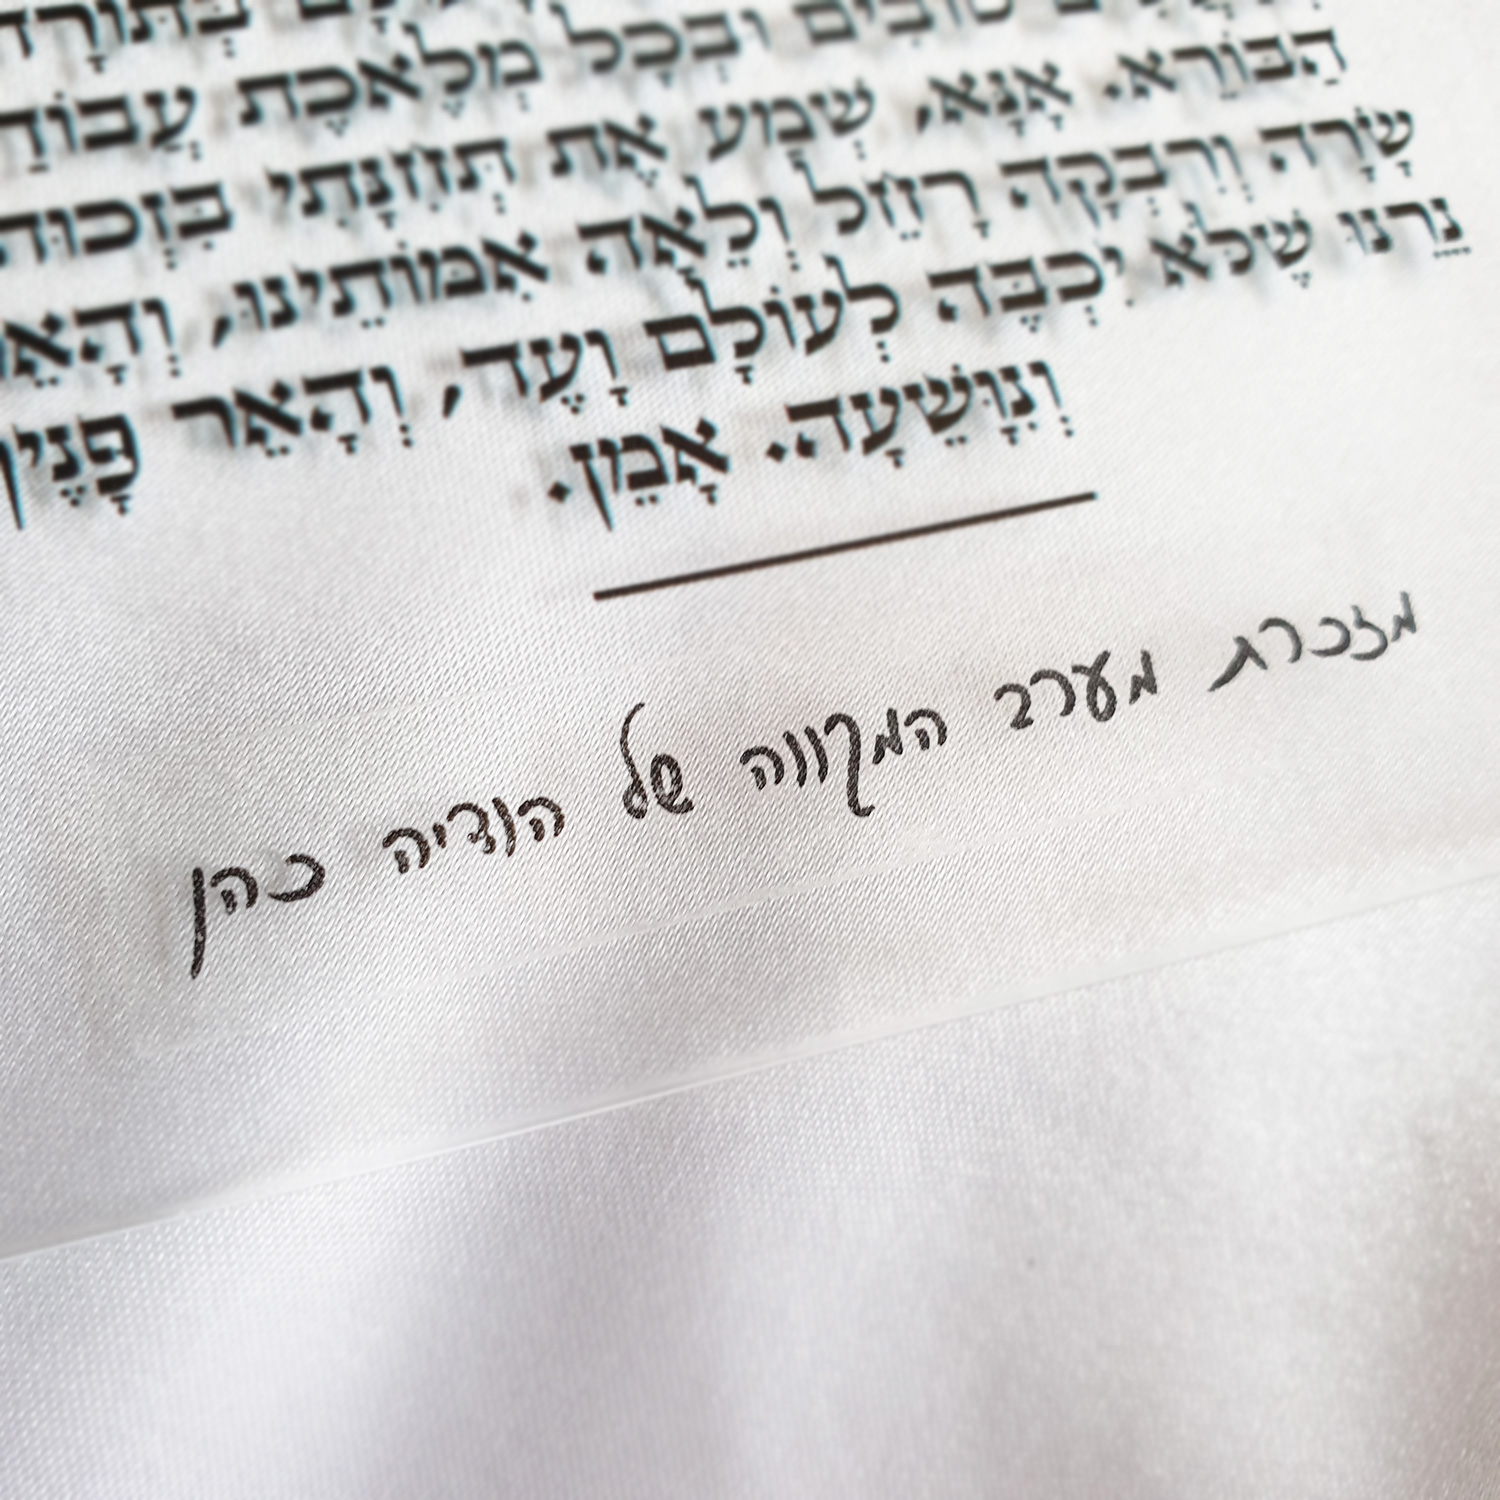 בְּתוֹרָה
טוֹבִים וּבְכָל מְלֶאכֶת
הַבּוֹרֵא. אָנָּא, שְׁמַע אֶת תְּחִנָּתִי בִּזְכוּת
שָׂרָה וְרִבְקָה רָחֵל וְלֵאָה אִמּוֹתֵינוּ, וְהָאֵר
נֵרֵנוּ שֶׁלֹּא יִכְבֶּה לְעוֹלָם וָעֶד, וְהָאֵר פָּנֶיךָ
וְנִוָּשֵׁעָה. אָמֵן.
מזכרת מערב המקווה של הודיה כהן